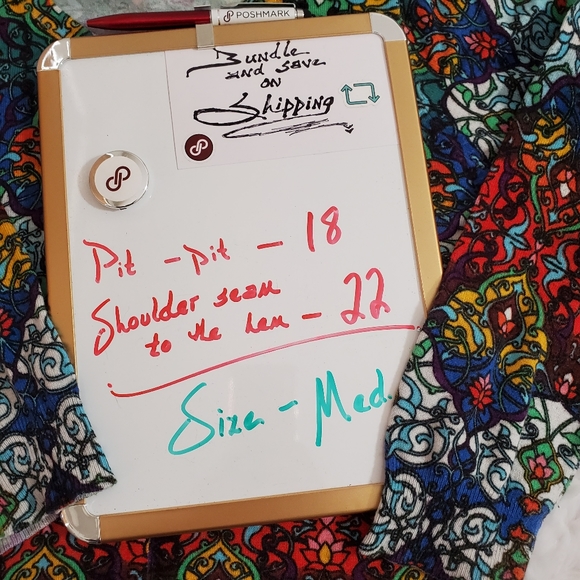 POSHMARK
Bundle
and save
on
Shipping
Pit - pit - 18
Shoulder seam
to the hem - 22
Size - Med.